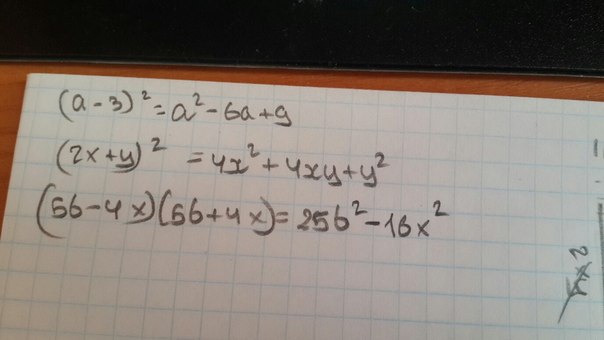 (a-3)² = a² - 6a + 9
(2x+y)² = 4x² + 4xy + y²
(5b-4x)(5b+4x) = 25b² - 16x²